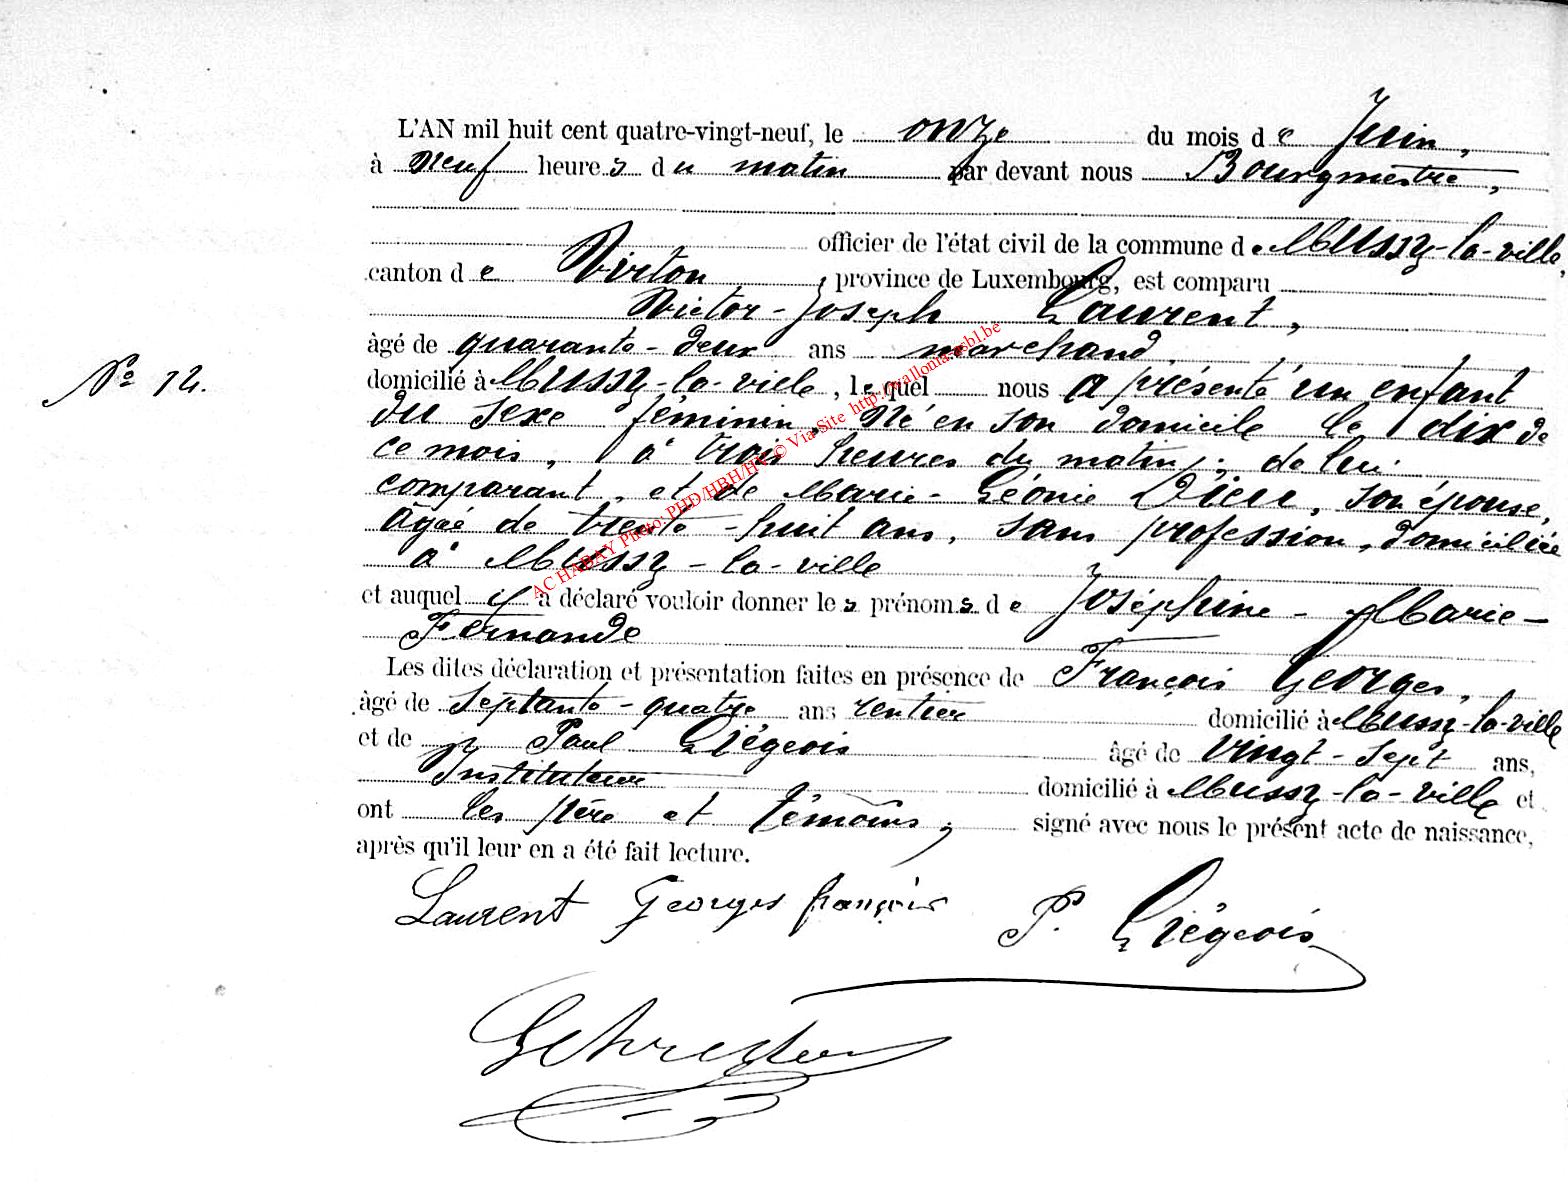 L'AN mil huit cent quatre-vingt-neuf, le onze du mois de Juin,
à neuf heures du matin par devant nous Bourgmestre,
officier de l'état civil de la commune de Mussy-la-ville,
canton de Virton, province de Luxembourg, est comparu
Victor-Joseph Laurent,
âgé de quarante-deux ans marchand,
domicilié à Mussy-la-ville, lequel nous a présenté un enfant
Nº 12.
du sexe féminin, né en son domicile le dix de
ce mois, à trois heures du matin; de lui
comparant, et de Marie-Léonie son épouse,
âgée de trente-huit ans, sans profession, domiciliée
à Mussy-la-ville
et auquel il a déclaré vouloir donner les prénoms de Joséphine-Marie-
Fernande
Les dites déclaration et présentation faites en présence de François Georges,
âgé de septante-quatre ans rentier domicilié à Mussy-la-ville
et de Paul Liégeois âgé de vingt-sept ans,
Instituteur domicilié à Mussy-la-ville et
ont les père et témoins, signé avec nous le présent acte de naissance,
après qu'il leur en a été fait lecture.
Laurent Georges françois P. Liégeois
AC HABAY Photo: PHD/HBH/HV © Via Site http://wallonia.asbl.be